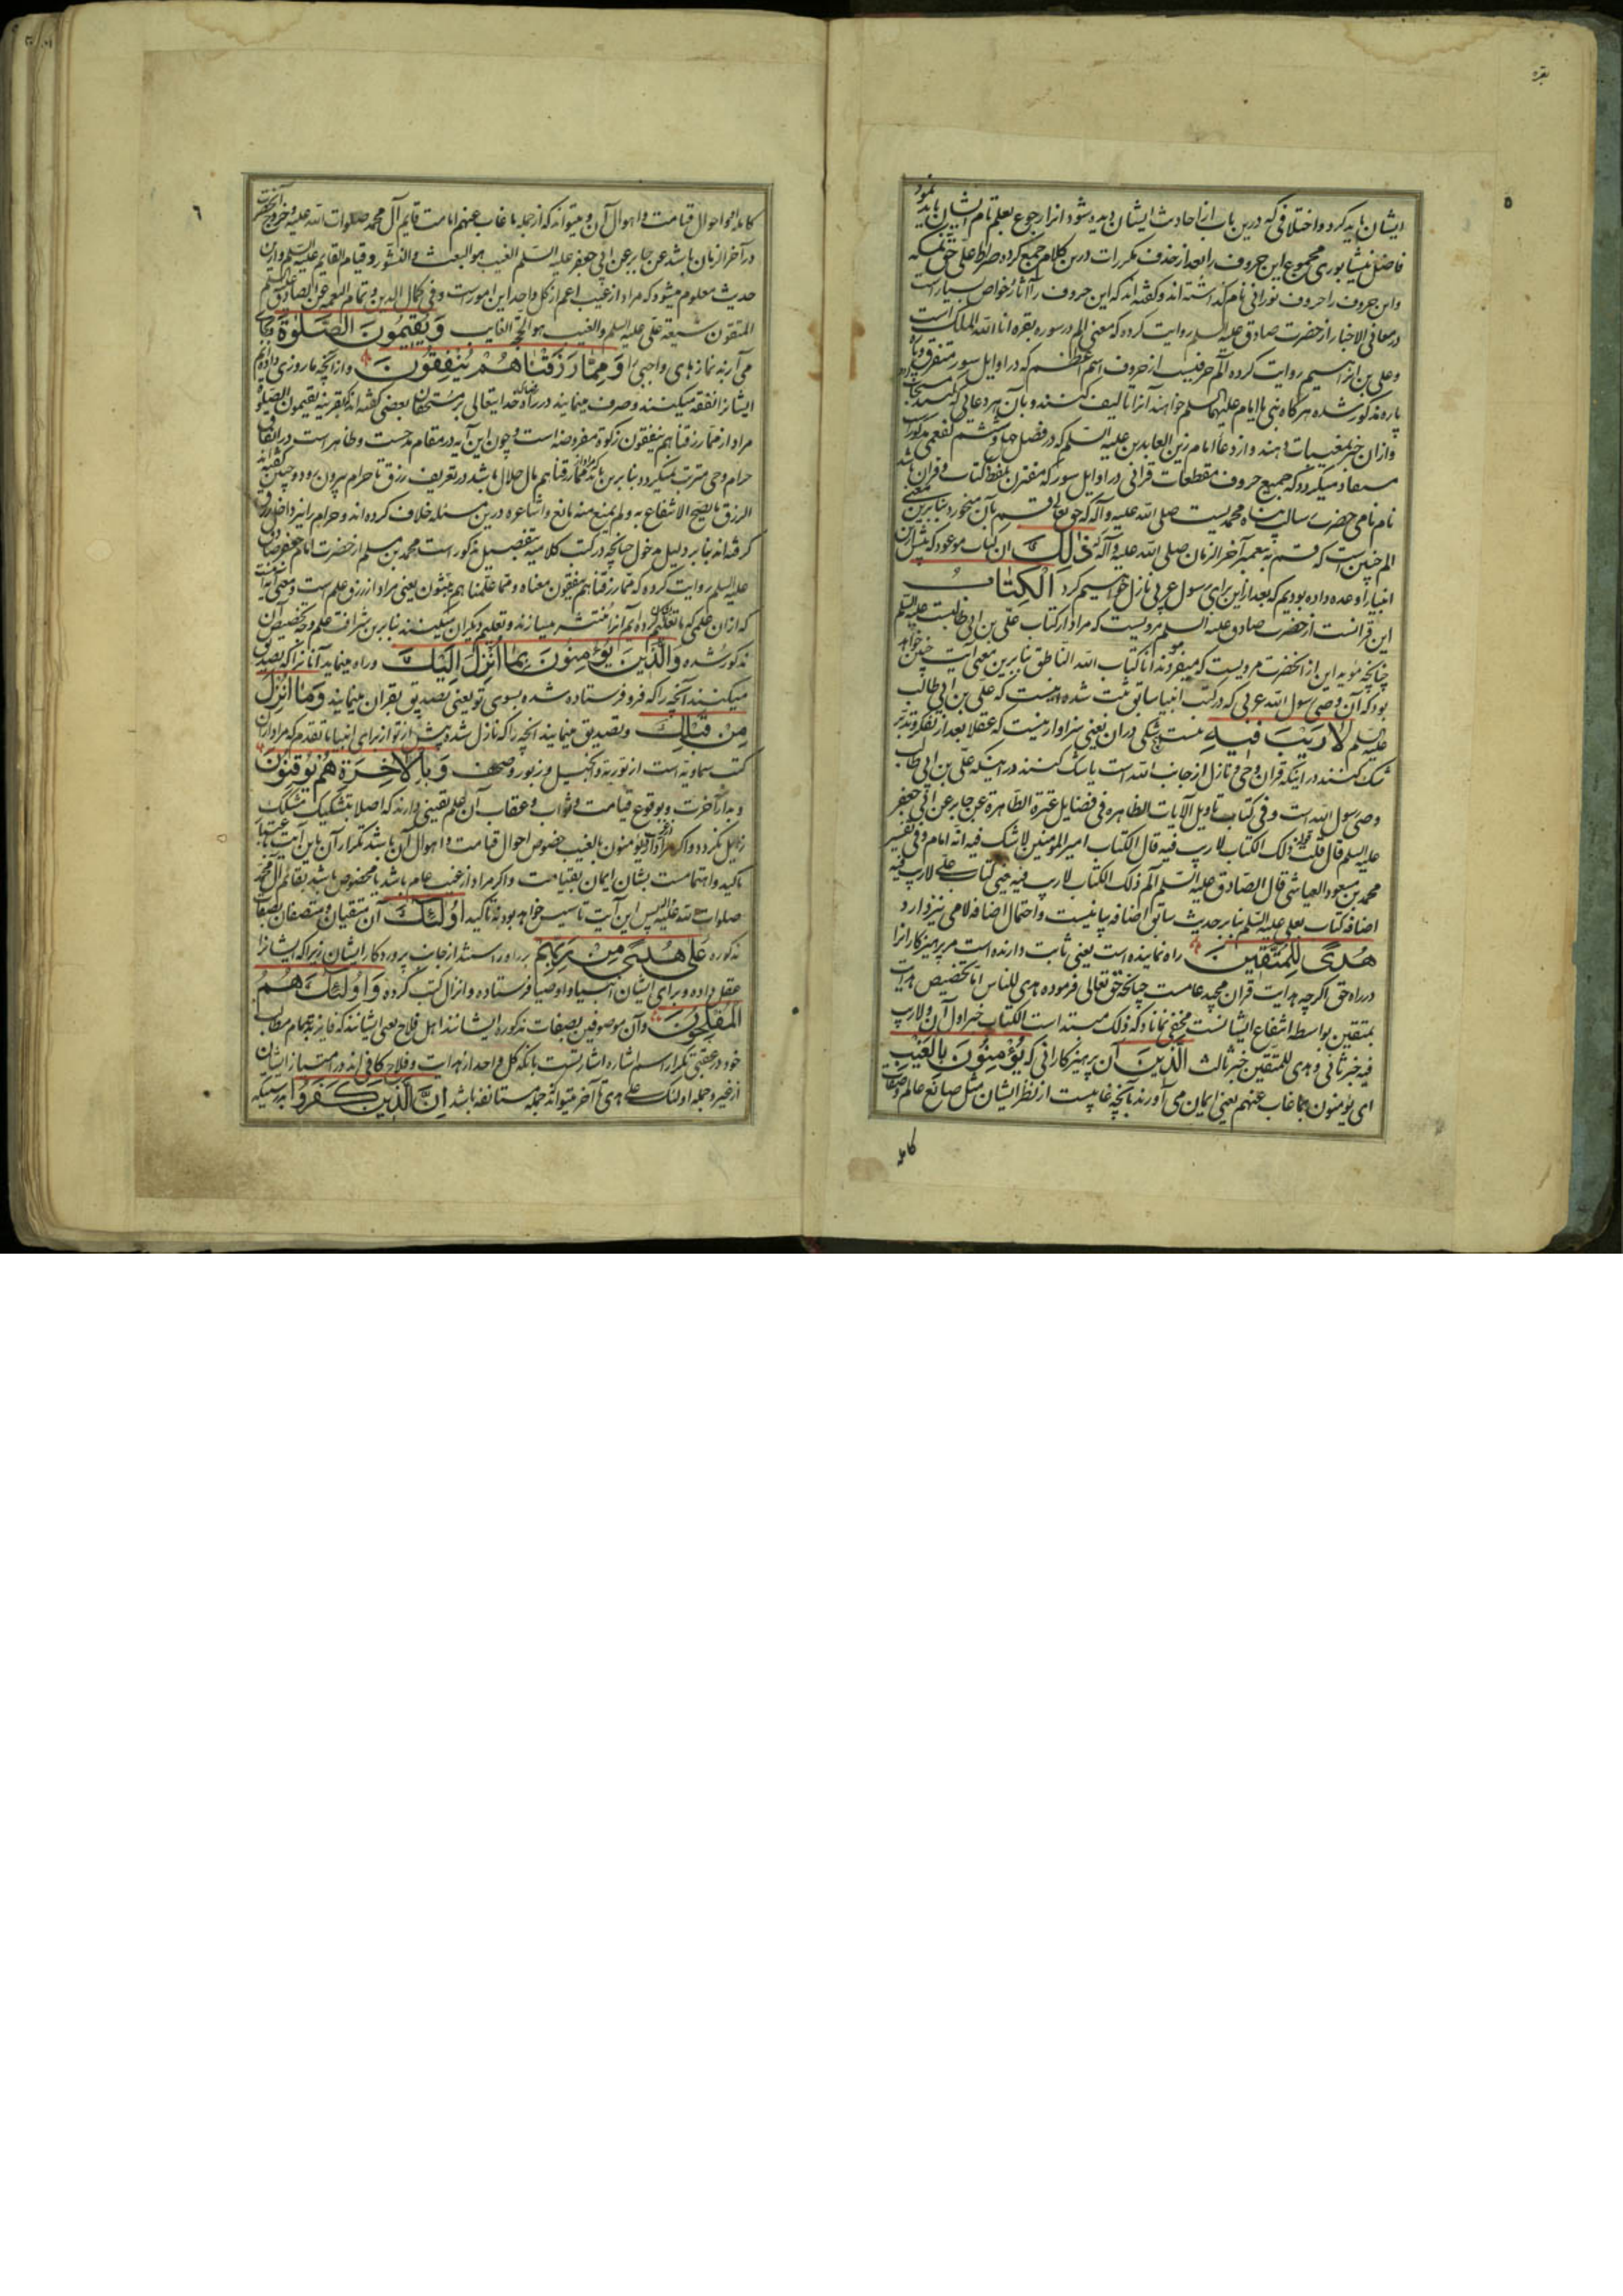 بقره
٥
ایشان باید کرد و اختلافی که درین باب از احادیث ایشان دیده شود انرا رجوع بعلم تام ایشان باید نمود
فاضل نیشابوری مجموع این حروف را بعد از حذف مکررات درین کلام جمع کرده صراط علی حق نمسکه
واین حروف را حروف نورانی نام کذاشته اند وکفته اند که این حروف را آثار وخواص بسیار است
در معانی الاخبار از حضرت صادق علیه السلم روایت کرده که معنی الم در سوره بقره انا الله الملک است
وعلی بن ابراهیم روایت کرده الم حرفیست از حروف اسم اعظم که در اوایل سور متفرق و پاره
پاره مذکور شده هرکاه نبی یا امام علیهما السلم خواهند آنرا تالیف کنند و بآن هر دعائی که کنند مستجاب
وازان خبر بمغیبات دهند و از دعا امام زین العابدین علیه السلم که در فصل چهل و ششم کفعمی مذکور است
مستفاد میکردد که جمیع حروف مقطعات قرانی در اوایل سور که مقترن بلفظ کتاب و قران باشد
نام نامی حضرت رسالت پناه محمدیست صلی الله علیه وآله که حق تعالی قسم بآن میخورد بنابرین معنی
الم چنین است که قسم به پیغمبر آخر الزمان صلی الله علیه وآله که ذٰلِكَ ان کتاب موعود که پیش ازین
انبیا را وعده داده بودیم که بعد ازین برای رسول عربی نازل خواهیم کرد الْكِتٰابُ
این قرانست از حضرت صادق علیه السلم مرویست که مراد از کتاب علی بن ابی طالبست علیه السلم
چنانچه مؤید این از انحضرت مرویست که میفرمودند انا کتاب الله الناطق بنابرین معنی آیت چنین خواهد
بود که آن وصی رسول الله عربی که در کتب انبیا سابق ثبت شده اینست که علی بن ابی طالب
علیه السلم لَا رَيْبَ فِيهِ نیست هیچ شکی دران یعنی سزاوار نیست که عقلا بعد از تفکر و تدبر
شک کنند در اینکه قران وحی و نازل از جانب الله است یا شک کنند در اینکه علی بن ابی طالب
وصی رسول الله است وفی کتاب تاویل الآیات الظاهرة فی فضایل عترة الطاهرة عن جابر عن ابی جعفر
علیه السلم قال قلت قوله ذلک الکتاب لا ریب فیه قال الکتاب امیر المؤمنین لا شک فیه انه امام وفی تفسیر
محمد بن مسعود العیاشی قال الصادق علیه السلم الم ذلک الکتاب لا ریب فیه یعنی کتاب علی لا ریب فیه
اضافه کتاب بعلی علیه السلم بنابر حدیث سابق اضافه بیانیست واحتمال اضافه لامی نیز دارد
هُدًى لِلْمُتَّقِينَ راه نماینده است یعنی ثابت دارنده است مر پرهیزکارانرا
در راه حق اکرچه هدایت قران مجید عامست چنانچه حق تعالی فرموده هدی للناس اما تخصیص هدایت
بمتقین بواسطه انتفاع ایشانست مخفی نماناد که ذلک مبتدا است الکتاب خبر اول آن ولا ریب
فیه خبر ثانی و هدی للمتقین خبر ثالث الَّذِينَ آن پرهیزکارانی که يُؤْمِنُونَ بِالْغَيْبِ
ای یؤمنون بما غاب عنهم یعنی ایمان می آورند بآنچه غایبست از نظر ایشان مثل صانع عالم وصفات
کامله
٦
کامله او و احوال قیامت و اهوال آن و میتواند که از جمله ما غاب عنهم امامت قایم آل محمد صلوات الله علیه وخروج انحضرت
در آخر الزمان باشد عن جابر عن ابی جعفر علیه السلم الغیب هو البعث و النشور وقیام القایم علیه السلم وازین
حدیث معلوم میشود که مراد از غیب اعم از کل واحد این امور است وفی کمال الدین وتمام النعمه عن الصادق علیه السلم
المتقون شیعة علی علیه السلم والغیب هو الحجة الغایب وَ يُقِيمُونَ الصَّلٰوةَ وبجای
می آرند نماز های واجبی را وَ مِمَّا رَزَقْنَاهُمْ يُنْفِقُونَ وازآنچه ما روزی داده ایم
ایشانرا نفقه میکنند وصرف مینمایند در راه خدا یتعالی بر مستحقان بعضی کفته اند که بقرینه یقیمون الصلوة
مراد از مما رزقناهم ینفقون زکوة مفروضه است و چون این آیه در مقام مدحست وظاهر است در انفاق
حرام مدحی مترتب نمیکردد بنابرین باید که مراد از مما رزقناهم مال حلال باشد در تعریف رزق تا حرام بیرون رود و چنین کفته اند
الرزق ما یصح الانتفاع به ولم یمنع منه مانع واشاعره درین مسئله خلاف کرده اند و حرام را نیز داخل رزق
کرفته اند بنابر دلیل مدخول چنانچه در کتب کلامیه بتفصیل مذکور است محمد بن مسلم از حضرت امام جعفر صادق
علیه السلم روایت کرده که مما رزقناهم ینفقون معناه ومما علمناهم یبثون یعنی مراد از رزق علم است ومعنی آیت اینست
که از ان علمی که ما تعلیم ایشان کرده ایم آنرا منتشر میسازند و تعلیم دیکران میکنند بنابرین شرافت علم وجه تخصیص آن
مذکور شده وَالَّذِينَ يُؤْمِنُونَ بِمَا أُنْزِلَ إِلَيْكَ وراه مینماید آنانرا که تصدیق
میکنند آنچه را که فرو فرستاده شده بسوی تو یعنی تصدیق بقران مینمایند وَمَا أُنْزِلَ
مِنْ قَبْلِكَ وتصدیق مینمایند انچه را که نازل شده پیش از تو از برای انبیا ما تقدم که مراد ازان
کتب سماویه است از توریة وانجیل وزبور وصحف وَ بِالْآخِرَةِ هُمْ يُوقِنُونَ
وبدار آخرت و بوقوع قیامت وثواب وعقاب آن علم یقینی دارند که اصلا بتشکیک مشکک
زایل نکردد واکر مراد از یؤمنون بالغیب خصوص احوال قیامت و اهوال آن باشد تکرار آن باین آیت بنابر
تاکید واهتمامست بشان ایمان بقیامت واکر مراد از غیب عام باشد یا مخصوص باشد بقائم آل محمد
صلوات الله علیه پس این آیت تاسیس خواهد بود نه تاکید أُولٰئِكَ آن متقیان ومتصفان بصفات
مذکوره عَلىٰ هُدًى مِنْ رَبِّهِمْ بر راه راستند از جانب پرورد کار ایشان زیرا که ایشانرا
عقل داده وبرای ایشان انبیاء و اوصیا فرستاده وانزال کتب کرده وَ أُولٰئِكَ هُمُ
الْمُفْلِحُونَ وآن موصوفین بصفات مذکوره ایشانند اهل فلاح یعنی ایشانند که فایزند بتمام مطالب
خود در عقبی تکرار اسم اشاره اشارتست بانکه کل واحد از هدایت و فلاح کافی اند در امتیاز ایشان
از غیر وجمله اولئک علی هدی تا آخر میتواند که جمله مستانفه باشد إِنَّ الَّذِينَ كَفَرُوا بدرستیکه